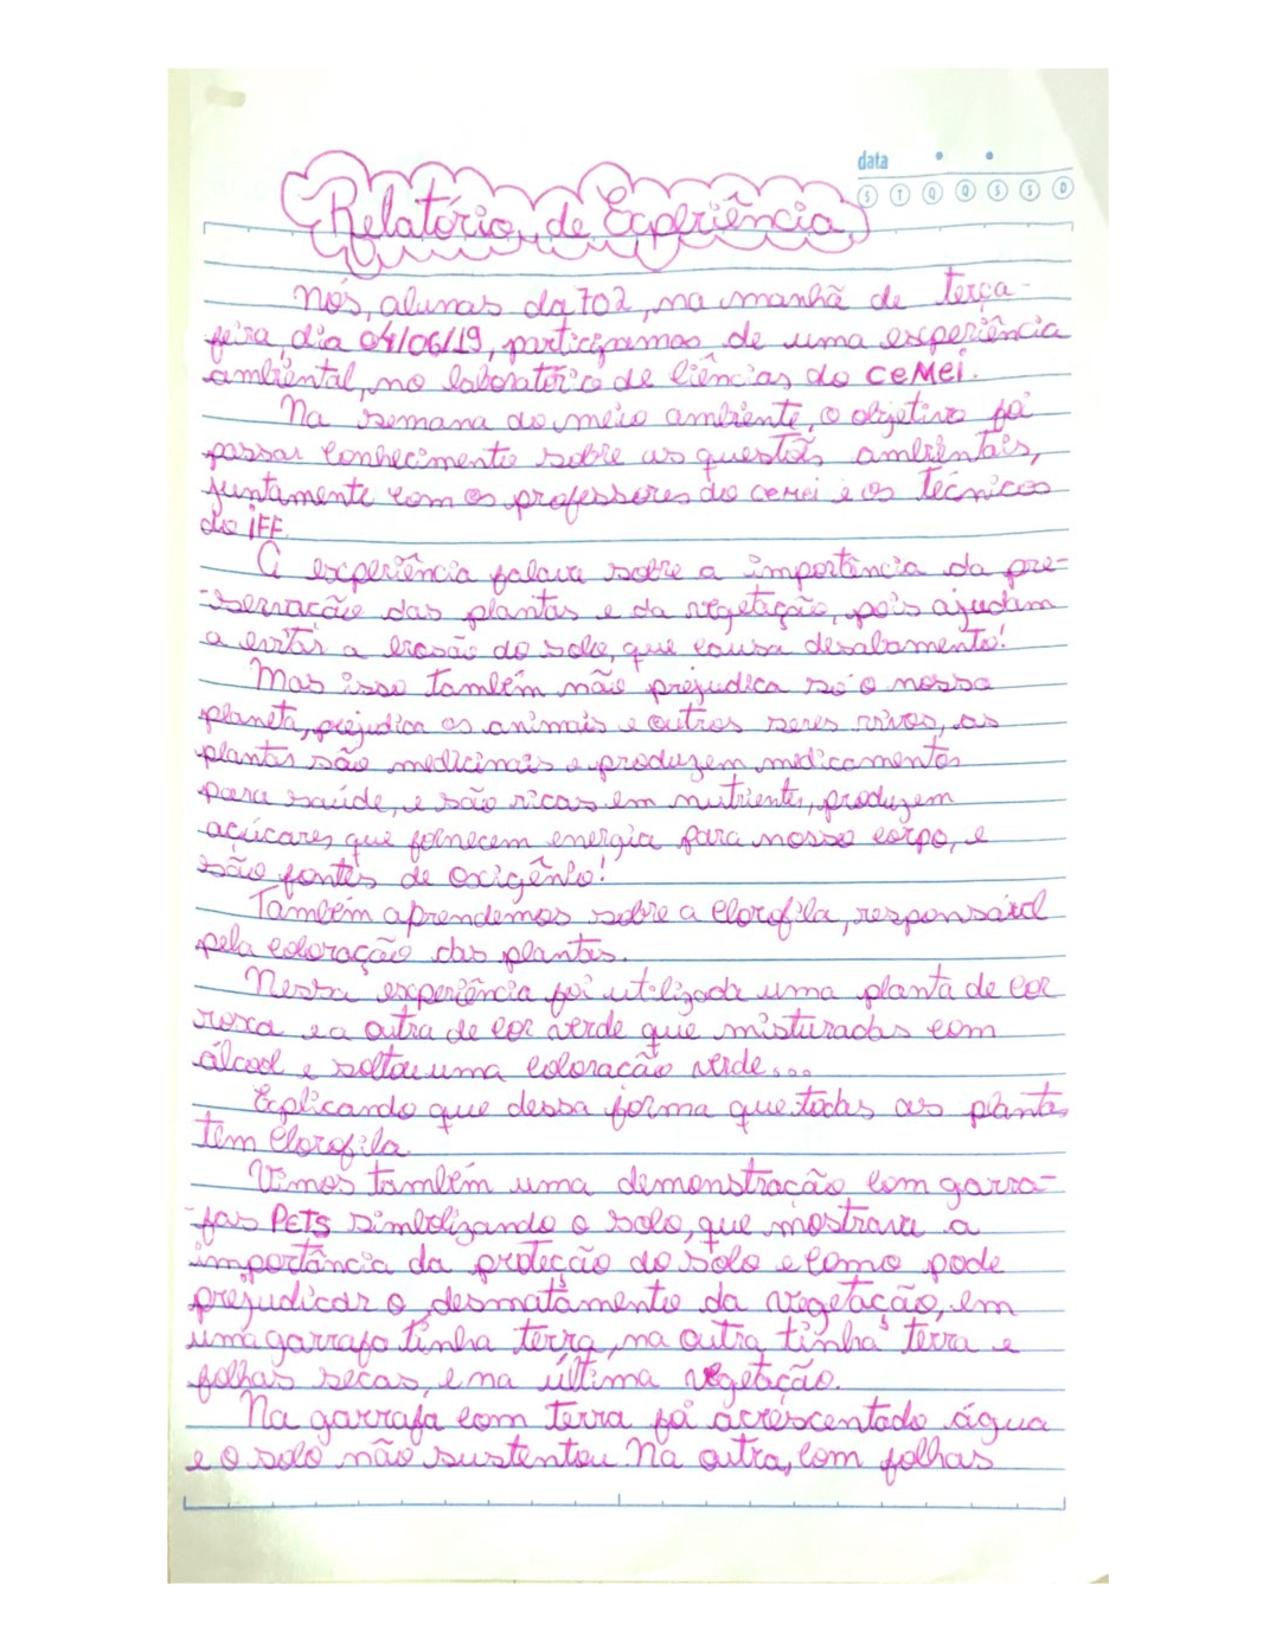 data
S T Q Q S S D
Relatório de Experiência
Nós, alunas da 702, na manhã de terça-
feira, dia 04/06/19, participamos de uma experiência
ambiental, no laboratório de Ciências do CeMei.
Na semana do meio ambiente, o objetivo foi
passar conhecimento sobre as questões ambientais,
juntamente com os professores do cemei e os Técnicos
do iFF.
A experiência falava sobre a importância da pre-
-servação das plantas e da vegetação, pois ajudam
a evitar a erosão do solo, que causa desabamento!
Mas isso também não prejudica só o nosso
planeta, prejudica os animais e outros seres vivos, as
plantas são medicinais e produzem medicamentos
para saúde, e são ricas em nutrientes, produzem
açúcares, que fornecem energia para nosso corpo, e
são fontes de oxigênio!
Também aprendemos sobre a clorofila, responsável
pela coloração das plantas.
Nessa experiência foi utilizada uma planta de cor
roxa e a outra de cor verde que misturadas com
álcool e soltou uma coloração verde...
Explicando que dessa forma que todas as plantas
tem clorofila.
Vimos também uma demonstração com garra-
-fas PETS simbolizando o solo, que mostrava a
importância da proteção do solo e como pode
prejudicar o desmatamento da vegetação, em
uma garrafa tinha terra, na outra tinha terra e
folhas secas, e na última vegetação.
Na garrafa com terra foi acrescentado água
e o solo não sustentou. Na outra, com folhas